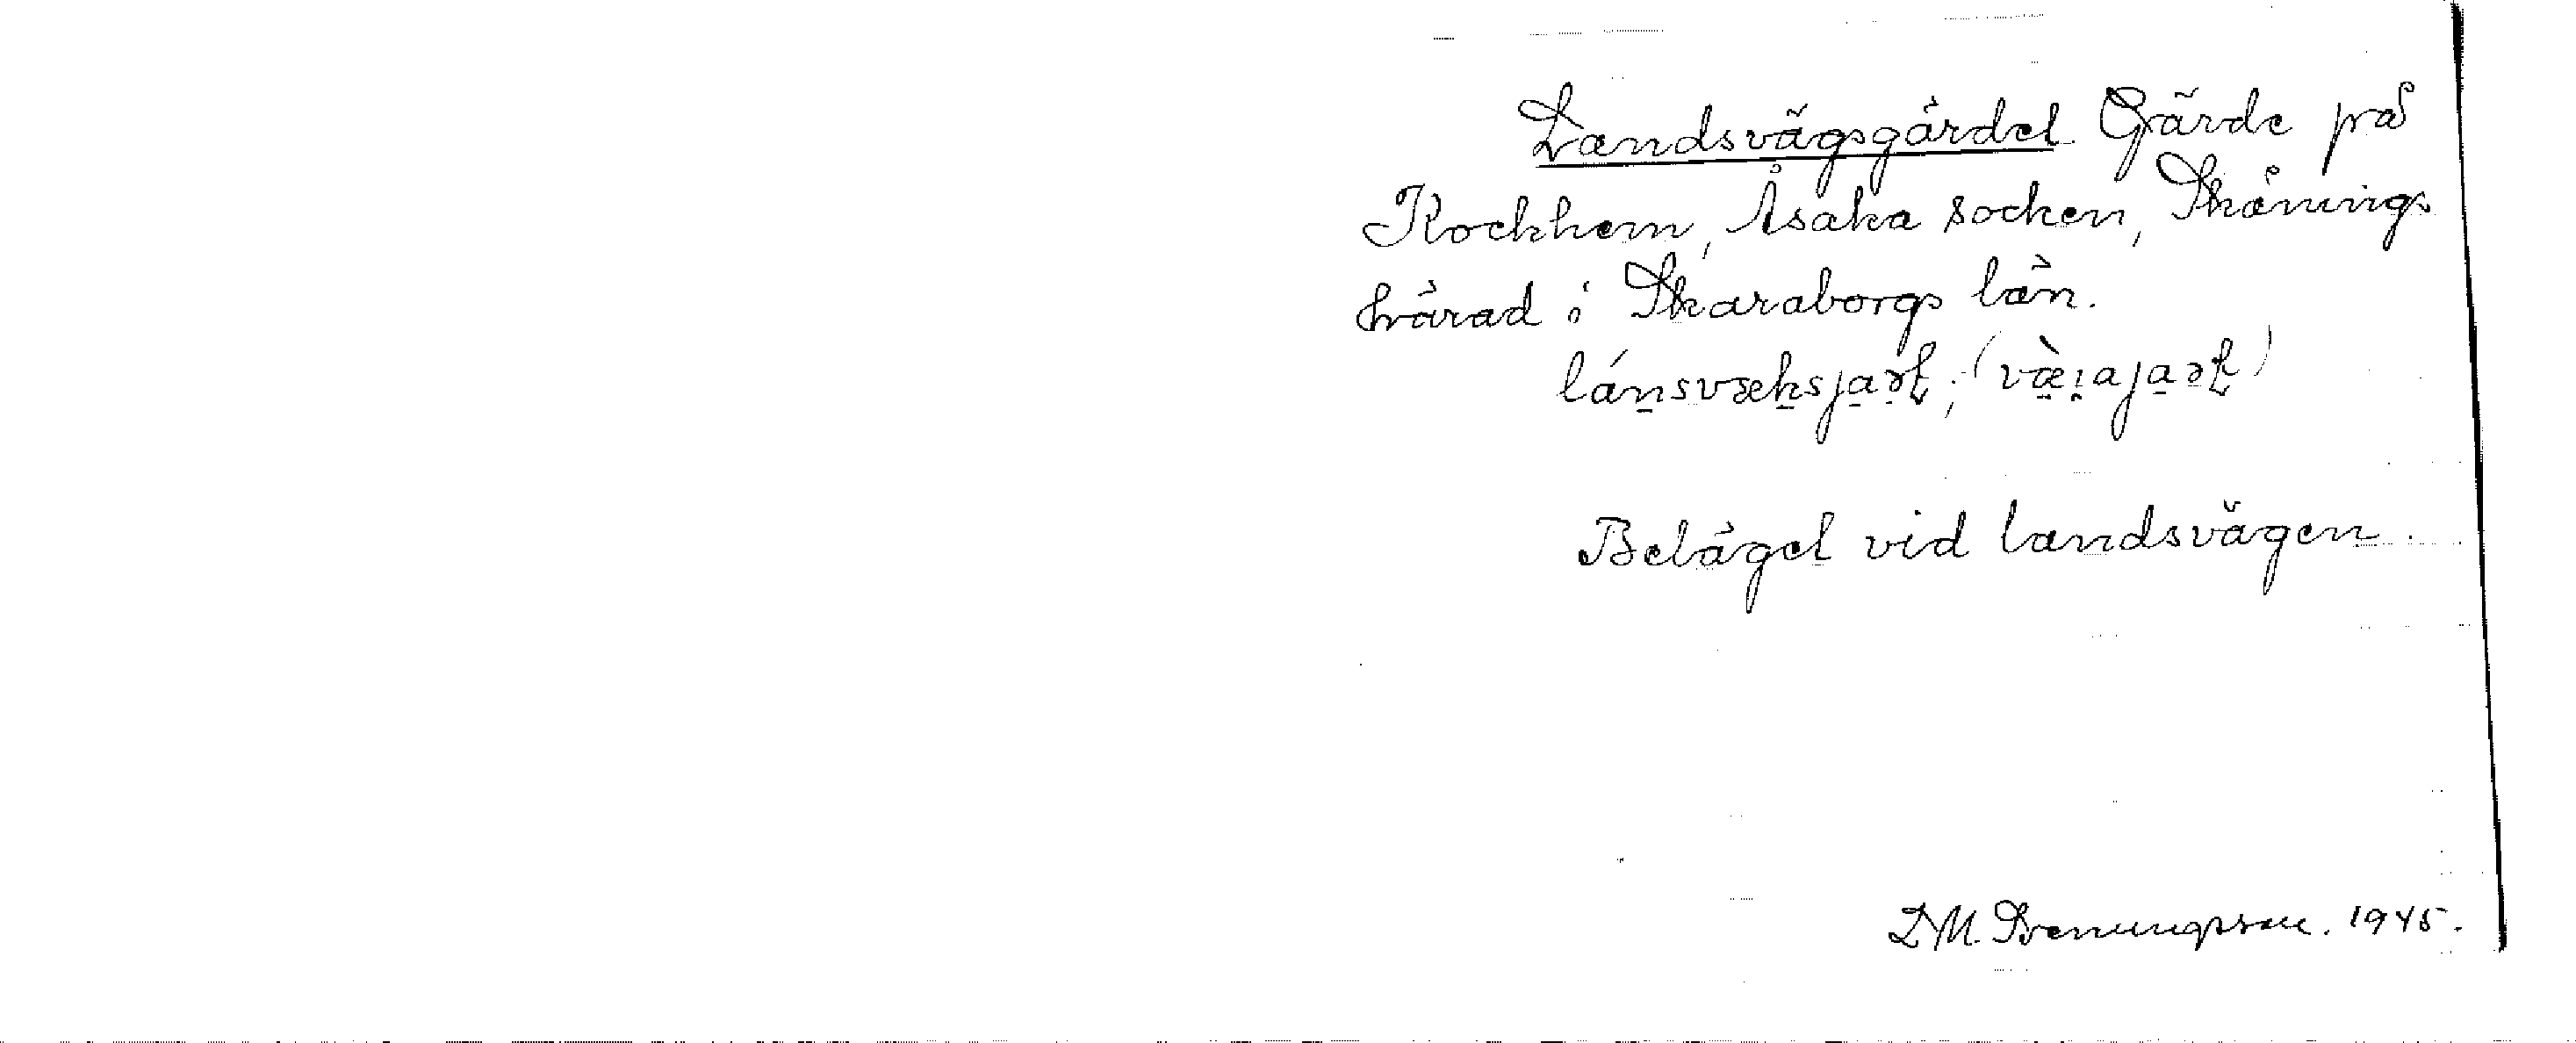 Landsvägsgärdet. Gärde på
Kockhem, Åsaka socken, Skånings
härad i Skaraborgs län.
Beläget vid landsvägen.
D.M. Svenungsson. 1945.